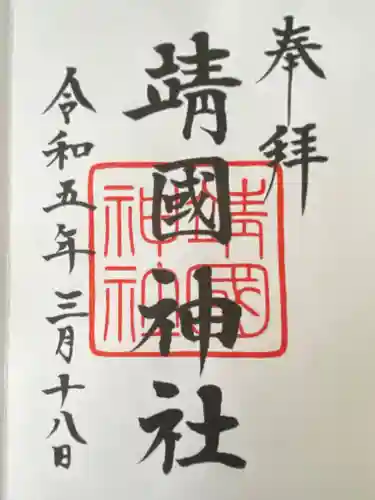 奉拝
靖國神社
靖國神社
令和五年三月十八日